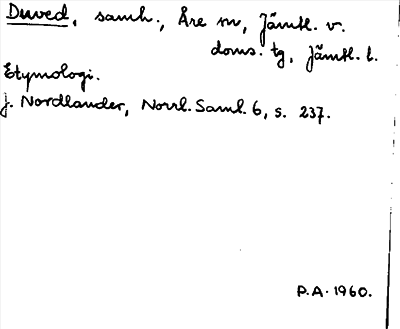 Duved, samh., Åre sn, Jämtl. v.
doms. tg, Jämtl. l.
Etymologi.
J. Nordlander, Norrl. Saml. 6, s. 237.
P.A. 1960.